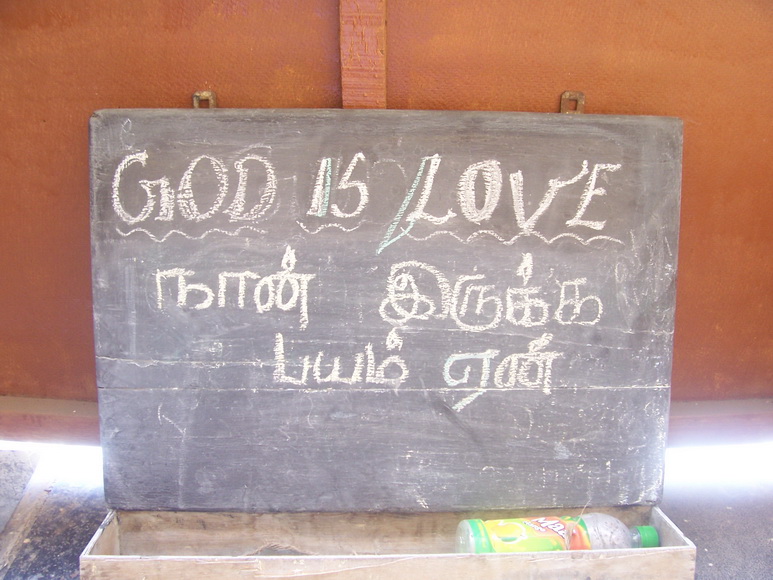 GOD IS LOVE
நான் இருக்க
பயம் ஏன்